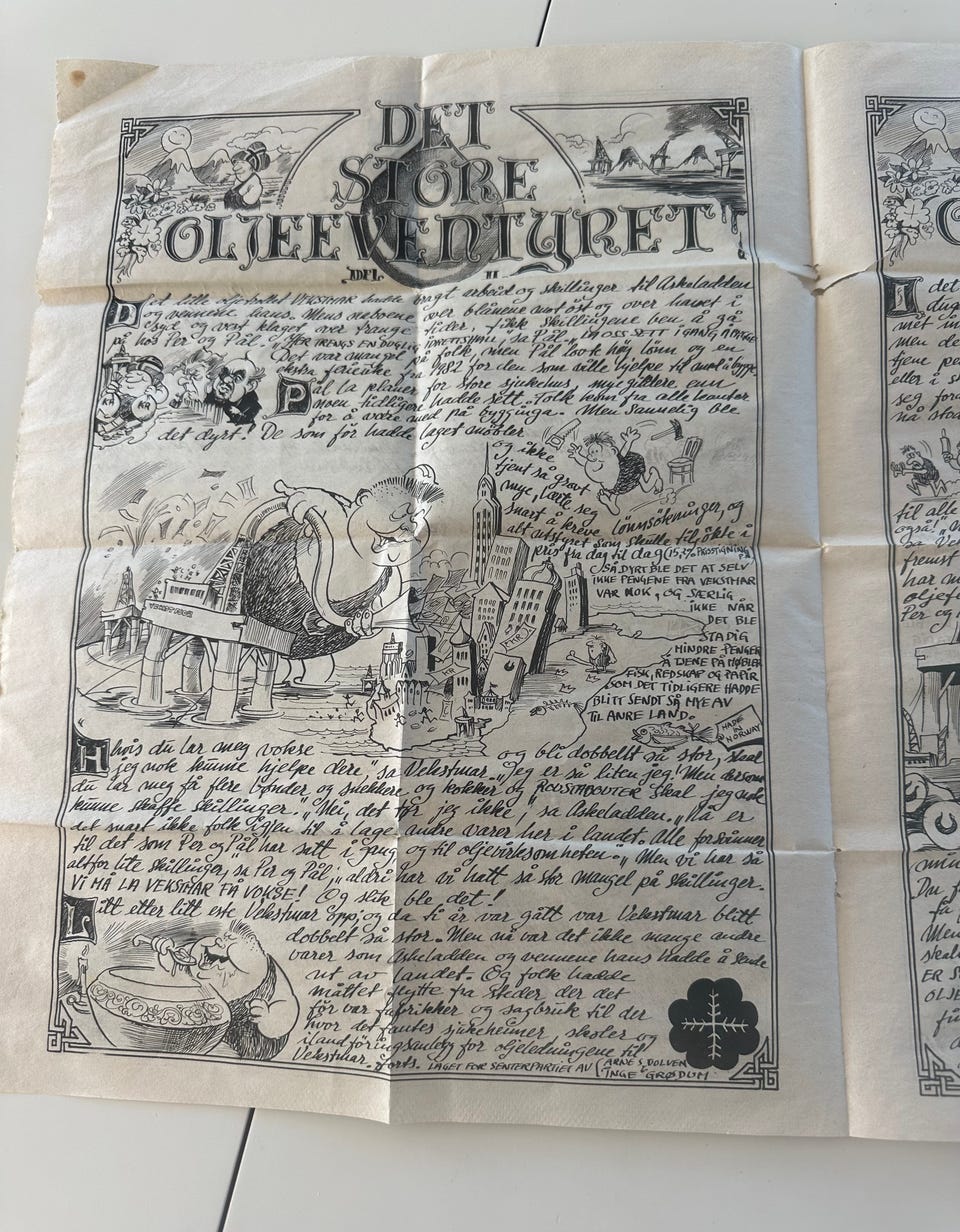 DET
STORE
OLJEEVENTYRET
DEL II
Det lille oljetrollet VEKSTMAR hadde bragt arbeid og skillinger til Askeladden
og vennene hans. Mens naboene over blånene mot øst og over havet i
syd og vest klaget over trange tider, fikk skillingene ben å gå
på hos Per og Pål. „HER TRENGS EN DUGLIG IDRETTSHALL", sa Pål.
Det var mangel på folk, men Pål lovte høy lønn og en
ekstra ferieuke fra 1982 for den som ville hjelpe til med å bygge
Pål la planer for store sjukehus, mye gildere enn
noen tidligere hadde sett. Folk kom fra alle kanter
for å være med på bygginga. Men sannelig ble
det dyrt! De som før hadde laget møbler
og ikke
tjent så grovt
mye, lærte seg
snart å kreve lønnsøkninger, og
alt utstyret som skulle til, økte i
pris fra dag til dag (15,3% PRISSTIGNING
SÅ DYRT BLE DET AT SELV
IKKE PENGENE FRA VEKSTMAR
VAR NOK, OG SÆRLIG
IKKE NÅR
DET BLE
STADIG
MINDRE PENGER
Å TJENE PÅ MØBLER
FISK, REDSKAP OG PAPIR
SOM DET TIDLIGERE HADDE
BLITT SENDT SÅ MYE AV
TIL ANRE LAND.
MADE
IN
NORWAY
KR
KR
„Hvis du lar meg vokse og bli dobbelt så stor, skal
jeg nok kunne hjelpe dere," sa Vekstmar. „Jeg er så liten jeg! Men dersom
du lar meg få flere bønder og snekkere og kokker og skal jeg nok
kunne skaffe skillinger." „Nei, det tør jeg ikke", sa Askeladden. „Nå er
det snart ikke folk igjen til å lage andre varer her i landet. Alle forsvinner
til det som Per og Pål har satt i gang og til oljevirksomheten." „Men vi har så
altfor lite skillinger", sa Per og Pål, „aldri har vi hatt så stor mangel på skillinger.
VI MÅ LA VEKSTMAR FÅ VOKSE! Og slik ble det!
Litt etter litt este Vekstmar opp, og da ti år var gått var Vekstmar blitt
dobbelt så stor. Men nå var det ikke mange andre
varer som Askeladden og vennene hans hadde å sende
ut av landet. Og folk hadde
måttet flytte fra steder der det
før var fabrikker og sagbruk til der
hvor det fantes sjukeheimer skoler og
ilandføringsanlegg for oljeledningene til
Vekstmar. Forts. LAGET FOR SENTERPARTIET AV (ARNE S. DOLVEN
INGE GRØDUM
I det
men de
eller i s
seg for
nå stod
til alle
også!"
fremst
har m
oljef
Per og